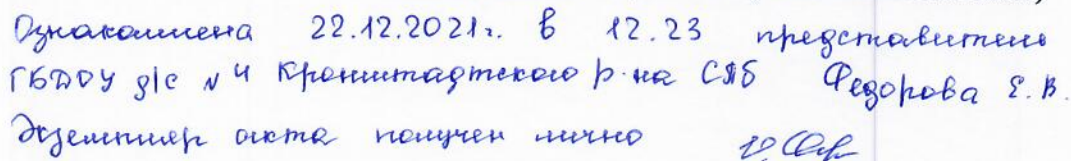 Ознакомлена 22.12.2021г. в 12.23 представитель
ГБДОУ д/с №4 Кронштадтского р-на СПб Федорова Е.В.
Экземпляр акта получен лично